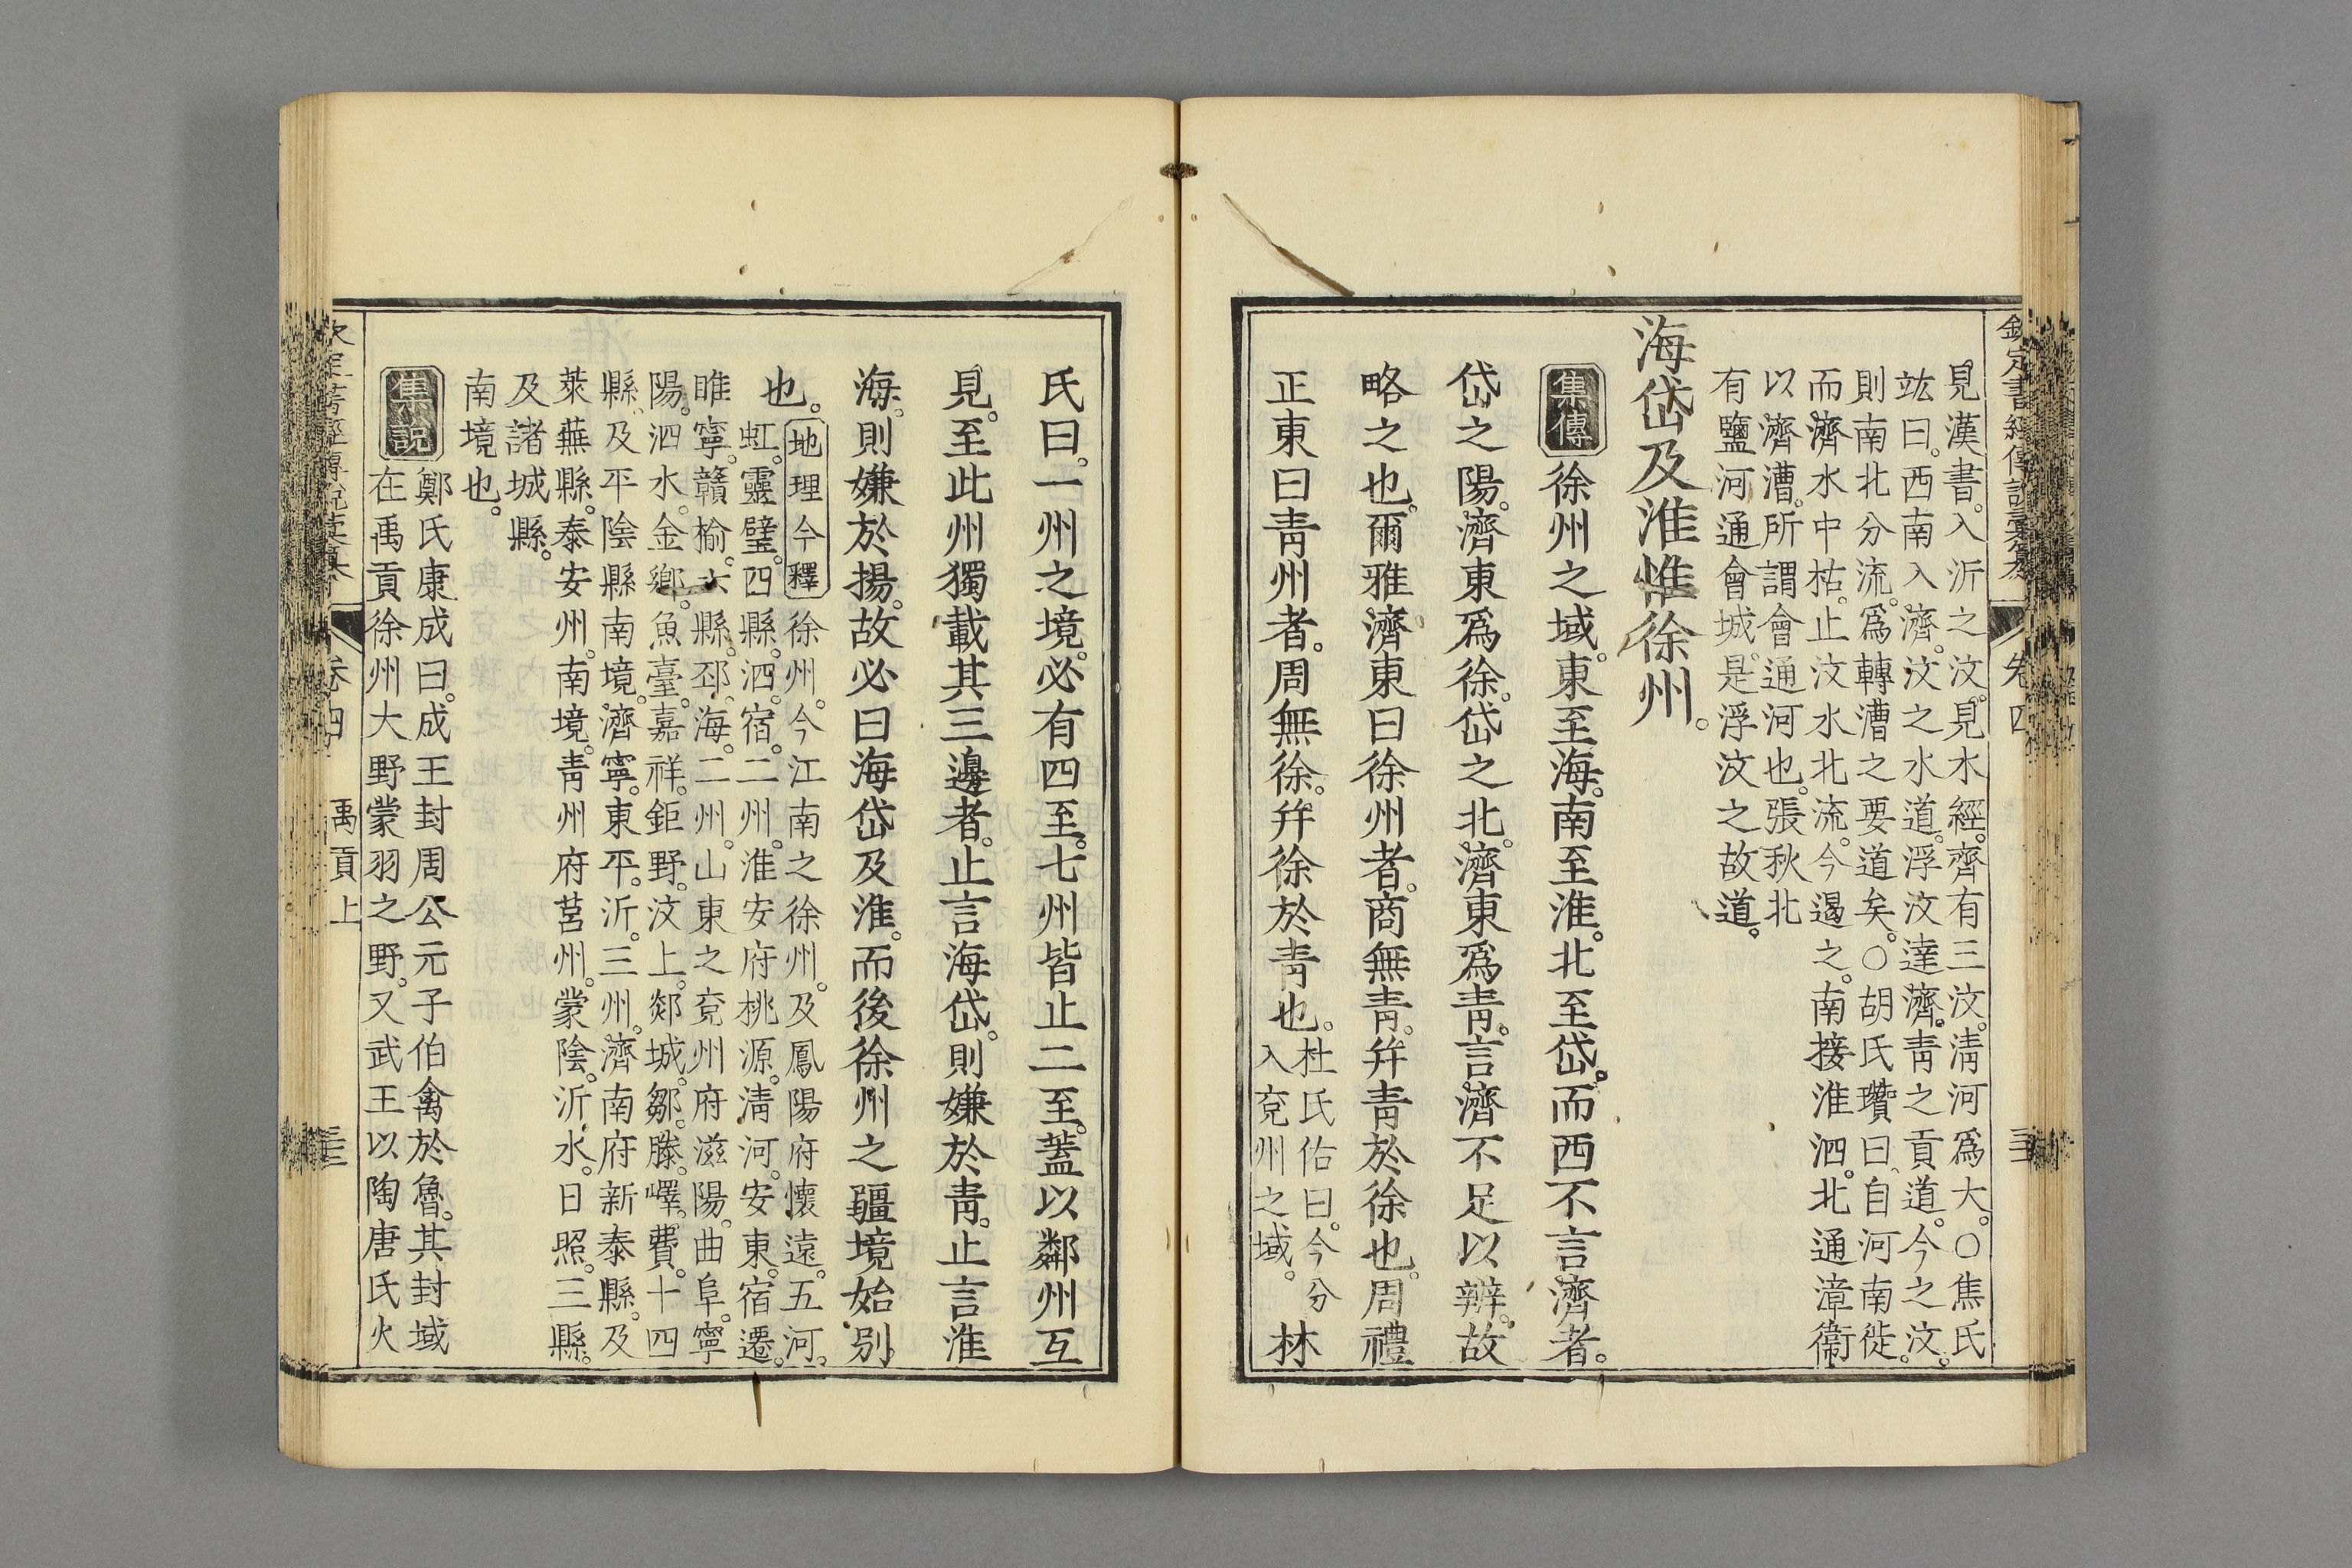 見漢書入沂之汶見水經齊有三汶淸河爲大○焦氏
竑曰西南入濟汶之水道浮汶達濟靑之貢道今之汶
則南北分流爲轉漕之要道矣○胡氏瓚曰自河南徙
而濟水中枯止汶水北流今遏之南接淮泗北通漳衞
以濟漕所謂會通河也張秋北
有鹽河通會城是浮汶之故道
海岱及淮惟徐州
集傳 徐州之域東至海南至淮北至岱而西不言濟者
岱之陽濟東爲徐岱之北濟東爲靑言濟不足以辨故
略之也爾雅濟東曰徐州者商無靑幷靑於徐也周禮
正東曰靑州者周無徐幷徐於靑也 杜氏佑曰今分
入兗州之域 林
氏曰一州之境必有四至七州皆止二至蓋以鄰州互
見至此州獨載其三邊者止言海岱則嫌於靑止言淮
海則嫌於揚故必曰海岱及淮而後徐州之疆境始別
也 地理今釋 徐州今江南之徐州及鳳陽府懷遠五河
虹靈璧四縣泗宿二州淮安府桃源淸河安東宿遷
睢寧贛榆六縣邳海二州山東之兗州府滋陽曲阜寧
陽泗水金鄉魚臺嘉祥鉅野汶上郯城鄒滕嶧費十四
縣及平陰縣南境濟寧東平沂三州濟南府新泰縣及
萊蕪縣泰安州南境靑州府莒州蒙陰沂水日照三縣
及諸城縣
南境也
集說 鄭氏康成曰成王封周公元子伯禽於魯其封域
在禹貢徐州大野蒙羽之野又武王以陶唐氏火
卷四 禹貢上